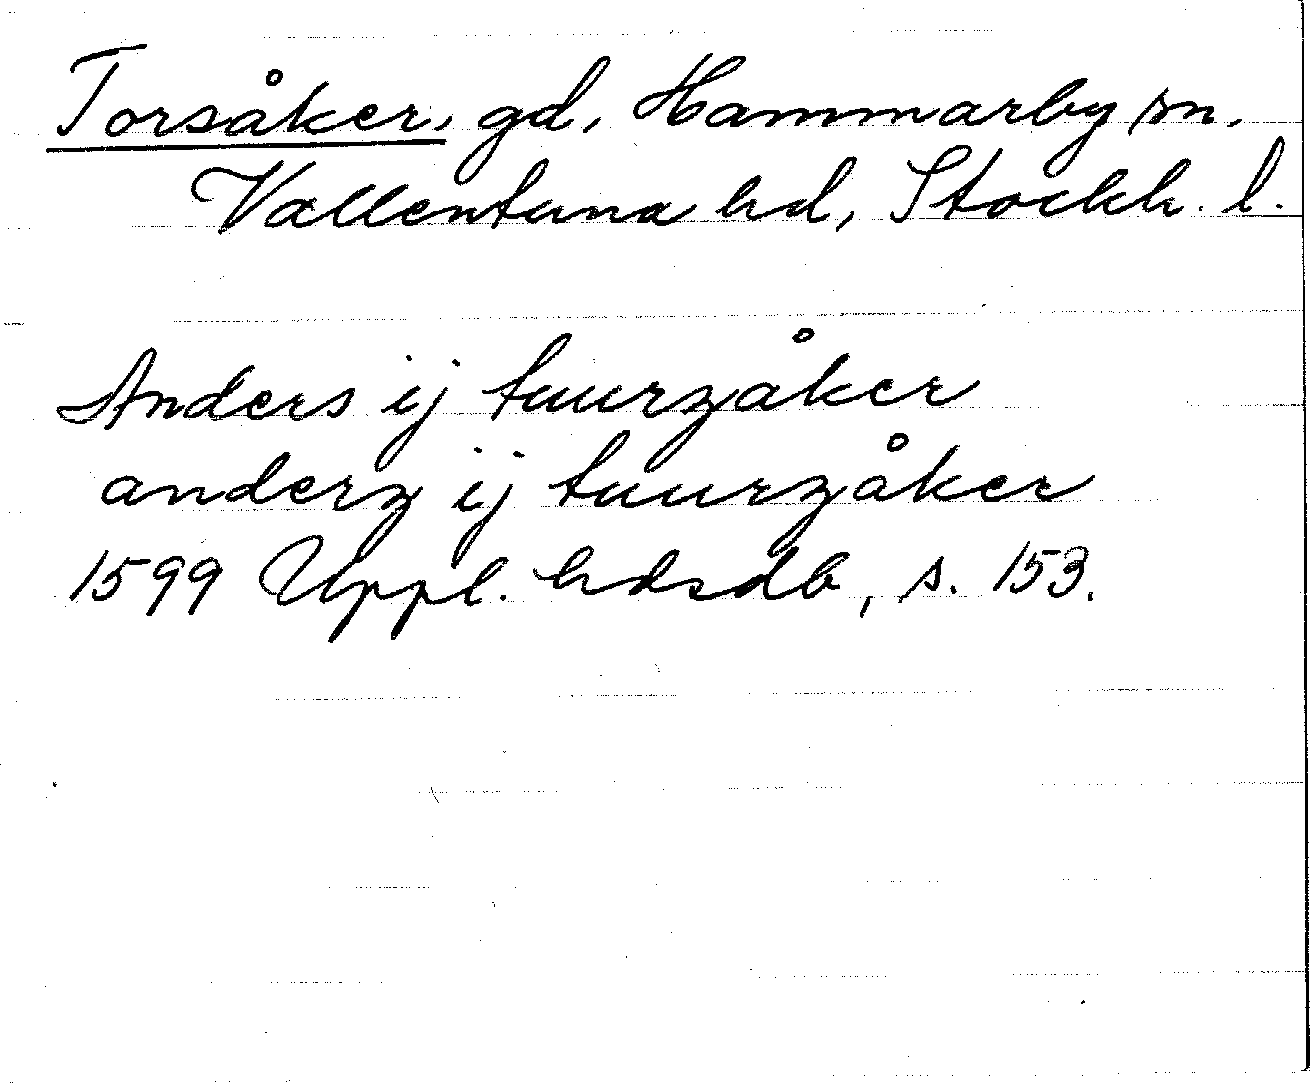 Torsåker, gd, Hammarby sn,
Vallentuna hd, Stockh. l.
Anders ij tuurzåker
anderz ij tuurzåker
1599 Uppl. hdsdb, s. 153.